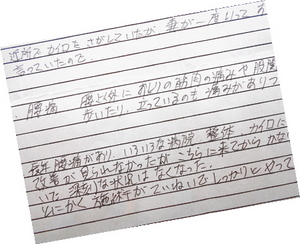 近所でカイロをさがしていたが 妻が一度行って
言っていたので
腰痛 腰と外におしりの筋肉の痛みや股関
歩いたり、立っているのも痛みがあり
長年腰痛があり、いろいろな病院、整体、カイロに
改善が見られなかったがこちらに来てから かな
いた 深刻な状況はなくなった。
とにかく施術がていねいでしっかりとやって